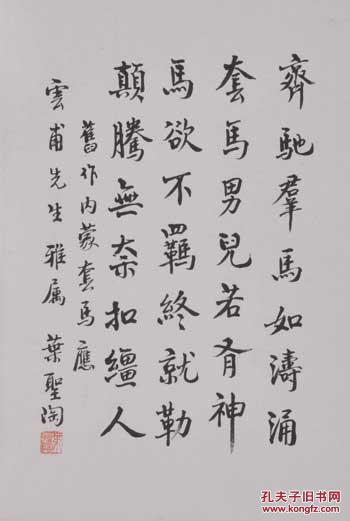 齊馳羣馬如濤涌
套馬男兒若有神
馬欲不羈終就勒
顛騰無柰扣繮人
舊作内蒙套馬應
雲甫先生雅属 葉聖陶
孔夫子旧书网
www.kongfz.com